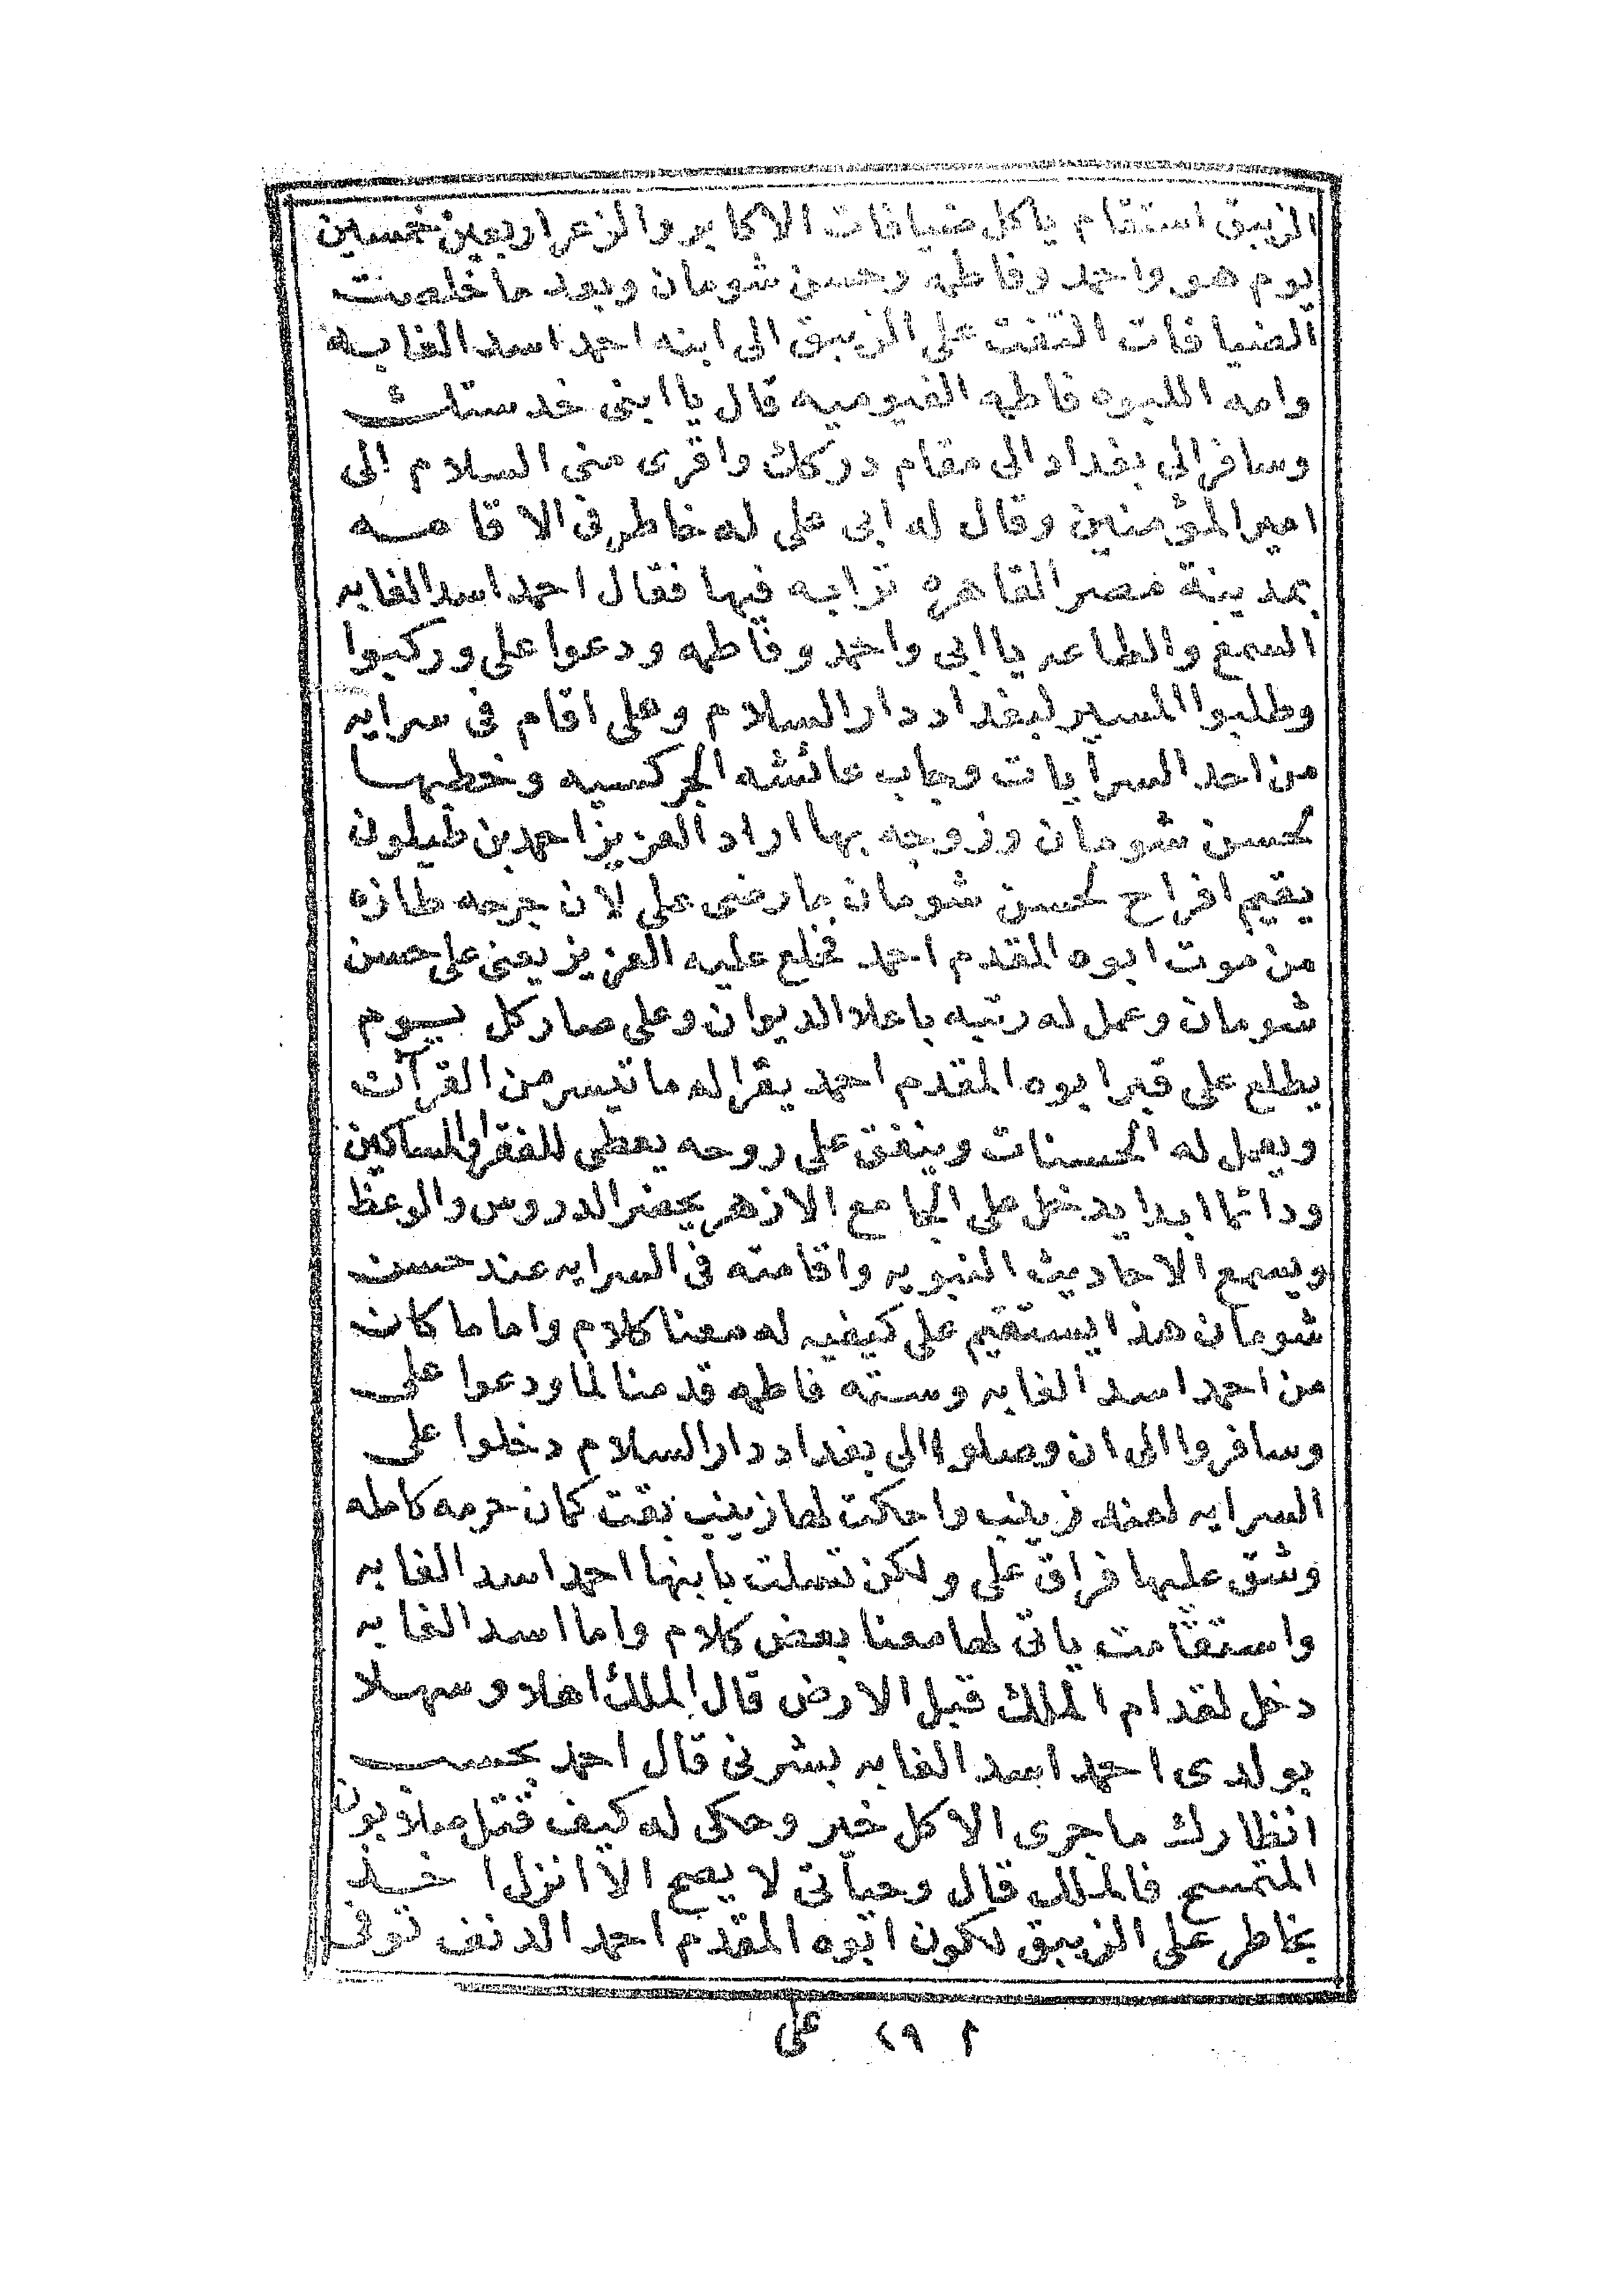 الزيبق استقام ياكل ضيافات الاكابر والزعر اربعين خمسين
يوم هو واحمد وفاطمه وحسن شومان وبعد ما خلصت
الضيافات التفت على الزيبق الى ابنه احمد اسد الغابه
وامه اللبوه فاطمه الفيوميه قال يا ابنى خد ستك
وسافر الى بغداد الى مقام دركك واقرى منى السلام الى
امير المؤمنين وقال له ابى على له خاطر فى الاقامـه
بمدينة مصر القاهره ترابه فيها فقال احمد اسد الغابه
السمع والطاعه يا ابى واحمد وفاطمه ودعوا على وركبوا
وطلبوا المسير لبغداد دار السلام وعلى اقام فى سرايه
من احد السرايات وجاب عائشه الجركسيه وخطبها
لحسن شومان وزوجه بها اراد العزيز احمد بن طيلون
يقيم افراح لحسن شومان ما رضى على لان جرحه طازه
من موت ابوه المقدم احمد فخلع عليه العزيز يعنى على حسن
شومان وعمل له رتبه باعلا الديوان وعلى صار كل يـوم
يطلع على قبر ابوه المقدم احمد يقرا له ما تيسر من القرآن
ويعمل له الحسنات وينفق على روحه يعطى للفقرا والمساكين
ودائما ابدا يدخل على الجامع الازهر يحضر الدروس والوعظ
ويسمع الاحاديث النبويه واقامته فى السرايه عند حسن
شومان هذا يستقيم على كيفيه له معنا كلام واما ما كان
من احمد اسد الغابه وسته فاطمه قدمنا لما ودعوا على
وسافروا الى ان وصلوا الى بغداد دار السلام دخلوا على
السرايه لعند زينب واحكت لها زينب بقت كمان حرمه كامله
وشق عليها فراق على ولكن تسلت بابنها احمد اسد الغابه
واستقامت ياتى لها معنا بعض كلام واما اسد الغابه
دخل لقدام الملك قبل الارض قال الملك اهلا وسهـلا
بولدى احمد اسد الغابه بشرنى قال احمد بحسب
انظارك ما جرى الا كل خير وحكى له كيف قتل
المتمسح فالملك قال وحياتى لا يصح الا انزل اخـد
بخاطر على الزيبق لكون ابوه المقدم احمد الدنف توفى
٢ ٢٩ على